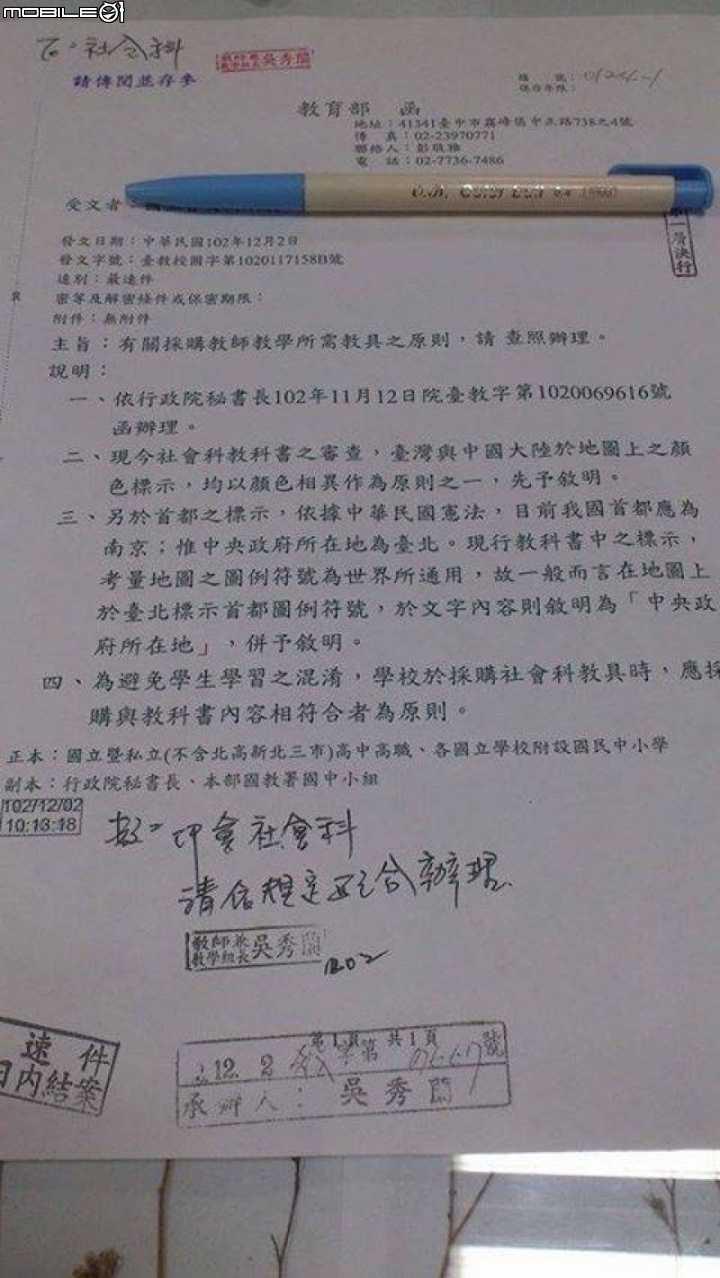 MOBILE01
To：社會科
教師兼
教學組長 吳秀蘭
請傳閱並存參
檔　號：
保存年限：
教育部　函
地址：41341臺中市霧峰區中正路738之4號
傳　真：02-23970771
聯絡人：彭
電　話：02-7736-7486
受文者：
第一層決行
發文日期：中華民國102年12月2日
發文字號：臺教授國字第1020117158B號
速別：最速件
密等及解密條件或保密期限：
附件：無附件
主旨：有關採購教師教學所需教具之原則，請 查照辦理。
說明：
一、依行政院秘書長102年11月12日院臺教字第1020069616號
函辦理。
二、現今社會科教科書之審查，臺灣與中國大陸於地圖上之顏
色標示，均以顏色相異作為原則之一，先予敘明。
三、另於首都之標示，依據中華民國憲法，目前我國首都應為
南京；惟中央政府所在地為臺北。現行教科書中之標示，
考量地圖之圖例符號為世界所通用，故一般而言在地圖上
於臺北標示首都圖例符號，於文字內容則敘明為「中央政
府所在地」，併予敘明。
四、為避免學生學習之混淆，學校於採購社會科教具時，應採
購與教科書內容相符合者為原則。
正本：國立暨私立(不含北高新北三市)高中高職、各國立學校附設國民中小學
副本：行政院秘書長、本部國教署國中小組
102/12/02
10:13:18
會社會科
請依規定配合辦理
教師兼
教學組長 吳秀蘭
1202
速件
日內結案
第1頁 共1頁
2.12. 2 第 號
承辦人：吳秀蘭